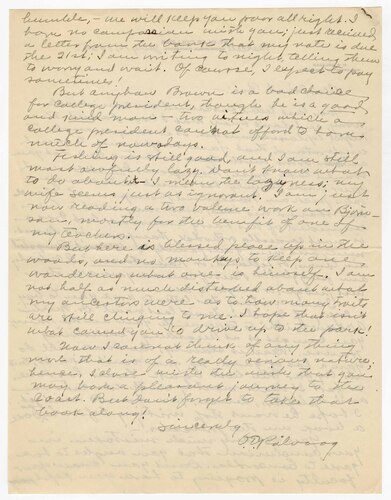 humble, - we will keep you poor all right. I
have no compassion with you; just received
a letter from the bank that my note is due
the 21st; I am writing to night telling them
to worry and wait. Of course, I expect to pay
sometime!
But anyhow Brown is a bad choice
for College president, though he is a good
and kind man - two virtues which a
college president can not afford to have
much of nowadays.
Fishing is still good, and I am still
most awfully lazy. Don't know what
to do about it - I mean the laziness; my
wife seems just as ignorant. I am just
now reading a two volume work on Bjørn-
son, mostly for the benefit of one of
my teachers.
But here is blessed peace up in the
woods, and no monkeys to keep one
wondering what one is himself. I am
not half as much disturbed about what
my ancestors were as to how many traits
are still clinging to me. I hope that isn't
what caused you to drive up to the park!
Now I can not think of any thing
more that is of a really serious nature,
hence, I close with the wish that you
may have a pleasant journey to the
Coast. But don't forget to take that
book along!
Sincerely
O E Rølvaag